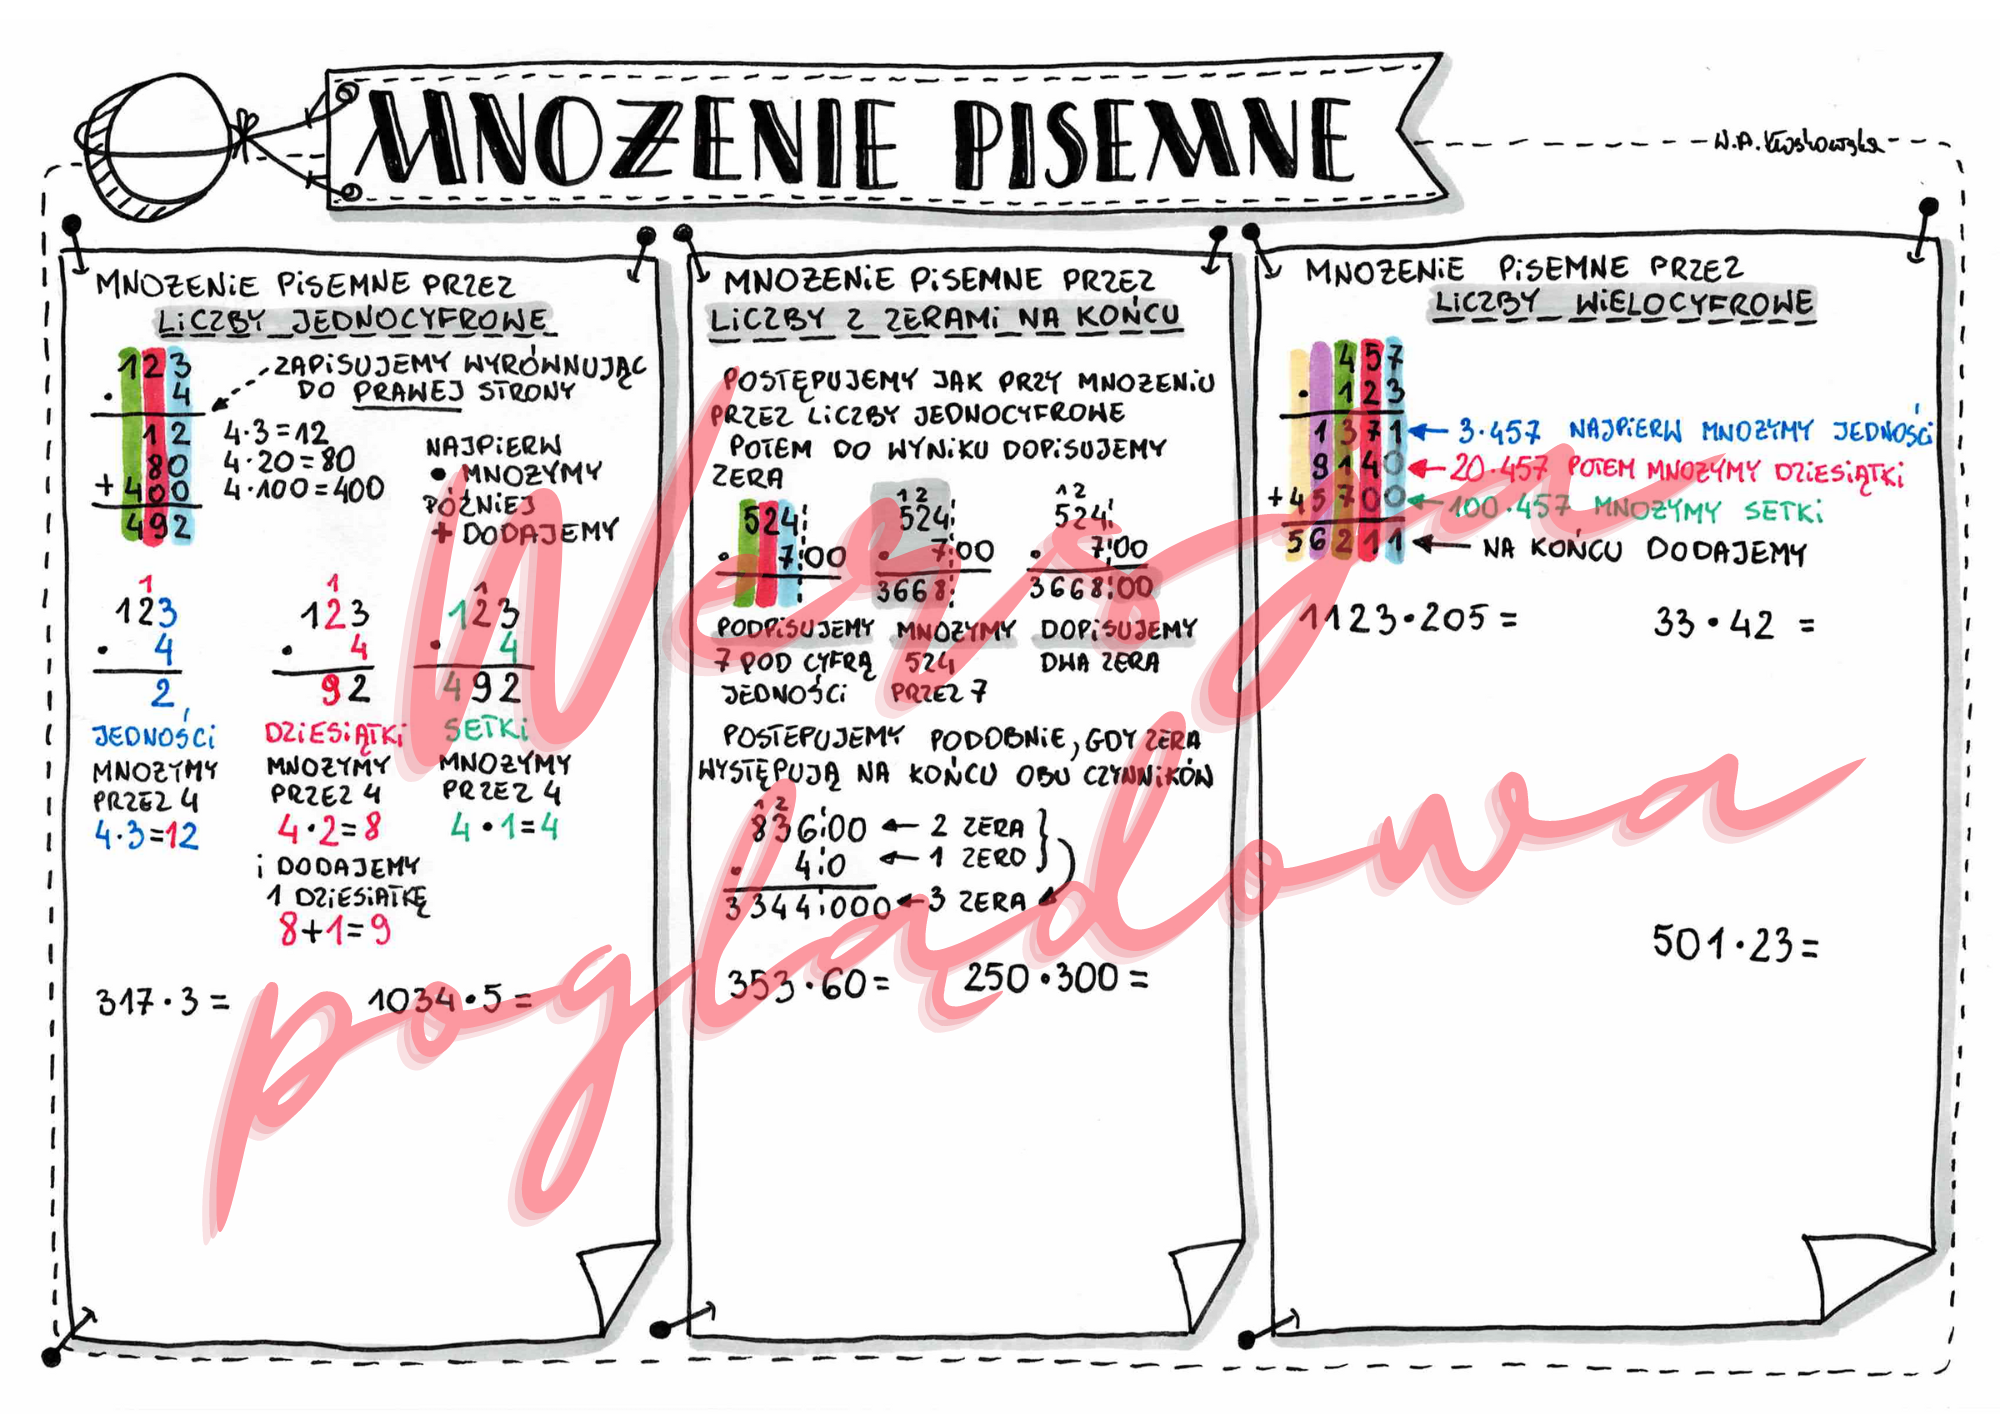 MNOŻENIE PISEMNE
W.A. Kłoskowska
MNOŻENIE PISEMNE PRZEZ
LICZBY JEDNOCYFROWE
123
· 4
12
80
+400
492
ZAPISUJEMY WYRÓWNUJĄC
DO PRAWEJ STRONY
4·3=12
4·20=80
4·100=400
NAJPIERW
• MNOŻYMY
PÓŹNIEJ
+ DODAJEMY
1
123
· 4
2
JEDNOŚCI
MNOŻYMY
PRZEZ 4
4·3=12
1
123
· 4
92
DZIESIĄTKI
MNOŻYMY
PRZEZ 4
4·2=8
i DODAJEMY
1 DZIESIĄTKĘ
8+1=9
1
123
· 4
492
SETKI
MNOŻYMY
PRZEZ 4
4·1=4
317·3=
1034·5=
MNOŻENIE PISEMNE PRZEZ
LICZBY Z ZERAMI NA KOŃCU
POSTĘPUJEMY JAK PRZY MNOŻENIU
PRZEZ LICZBY JEDNOCYFROWE
POTEM DO WYNIKU DOPISUJEMY
ZERA
524
· 700
PODPISUJEMY
7 POD CYFRĄ
JEDNOŚCI
12
524
· 700
3668
MNOŻYMY
524
PRZEZ 7
12
524
· 700
366800
DOPISUJEMY
DWA ZERA
POSTEPUJEMY PODOBNIE, GDY ZERA
WYSTĘPUJĄ NA KOŃCU OBU CZYNNIKÓW
12
83600 ← 2 ZERA
· 40 ← 1 ZERO
3344000 ← 3 ZERA
353·60=
250·300=
MNOŻENIE PISEMNE PRZEZ
LICZBY WIELOCYFROWE
457
· 123
1371 ← 3·457 NAJPIERW MNOŻYMY JEDNOŚCI
9140 ← 20·457 POTEM MNOŻYMY DZIESIĄTKI
+45700 ← 100·457 MNOŻYMY SETKI
56211 ← NA KOŃCU DODAJEMY
1123·205=
33·42=
501·23=
Wersja
poglądowa